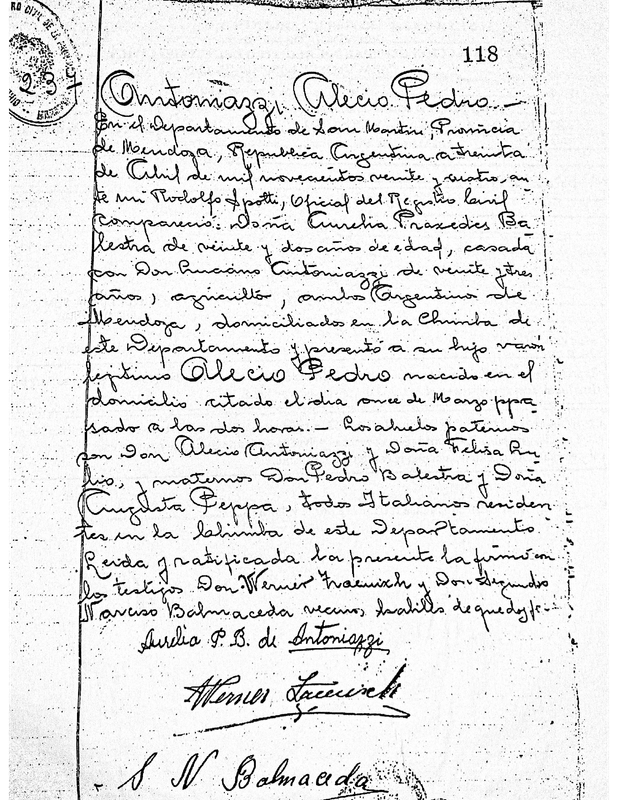 118
237
Antoniazzi, Alecio Pedro.—
En el Departamento de San Martin, Provincia
de Mendoza, Republica Argentina, a treinta
de Abil de mil novecientos veinte y cuatro, an
te mi Rodolfo Spotti, Oficial del Registro Civil
comparecio: Doña Aurelia Praxedes Ba
lestra de veinte y dos años de edad, casada
con Don Luciano Antoniazzi de veinte y tres
años, agricultor, ambos Argentinos de
Mendoza, domiciliados en la Chimba de
este Departamento y presentó a su hijo varon
legitimo Alecio Pedro nacido en el
domicilio citado el dia once de Marzo ppa
sado a las dos horas.— Los abuelos paternos
son Don Alecio Antoniazzi y Doña Felisa
y maternos Don Pedro Balestra y Doña
Augusta Peppa, todos Italianos residen
tes en la Chimba de este Departamento
Leida y ratificada la presente la firma con
los testigos Don Werner y Don Segundo
Narciso Balmaceda vecinos, habiles de que doy fe—
Aurelia P. B. de Antoniazzi
Werner
S N Balmaceda